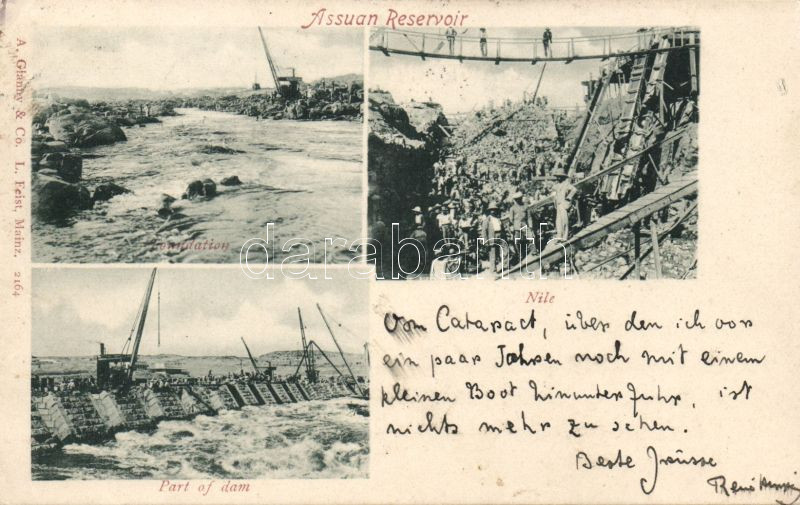 Assuan Reservoir
A. Gläntz & Co. L. Feist, Mainz. 2164
Foundation
Nile
Part of dam
darabanth
Vom Cataract, über den ich vor
ein paar Jahren noch mit einem
kleinen Boot hinunterfuhr, ist
nichts mehr zu sehen.
Beste Grüsse
René